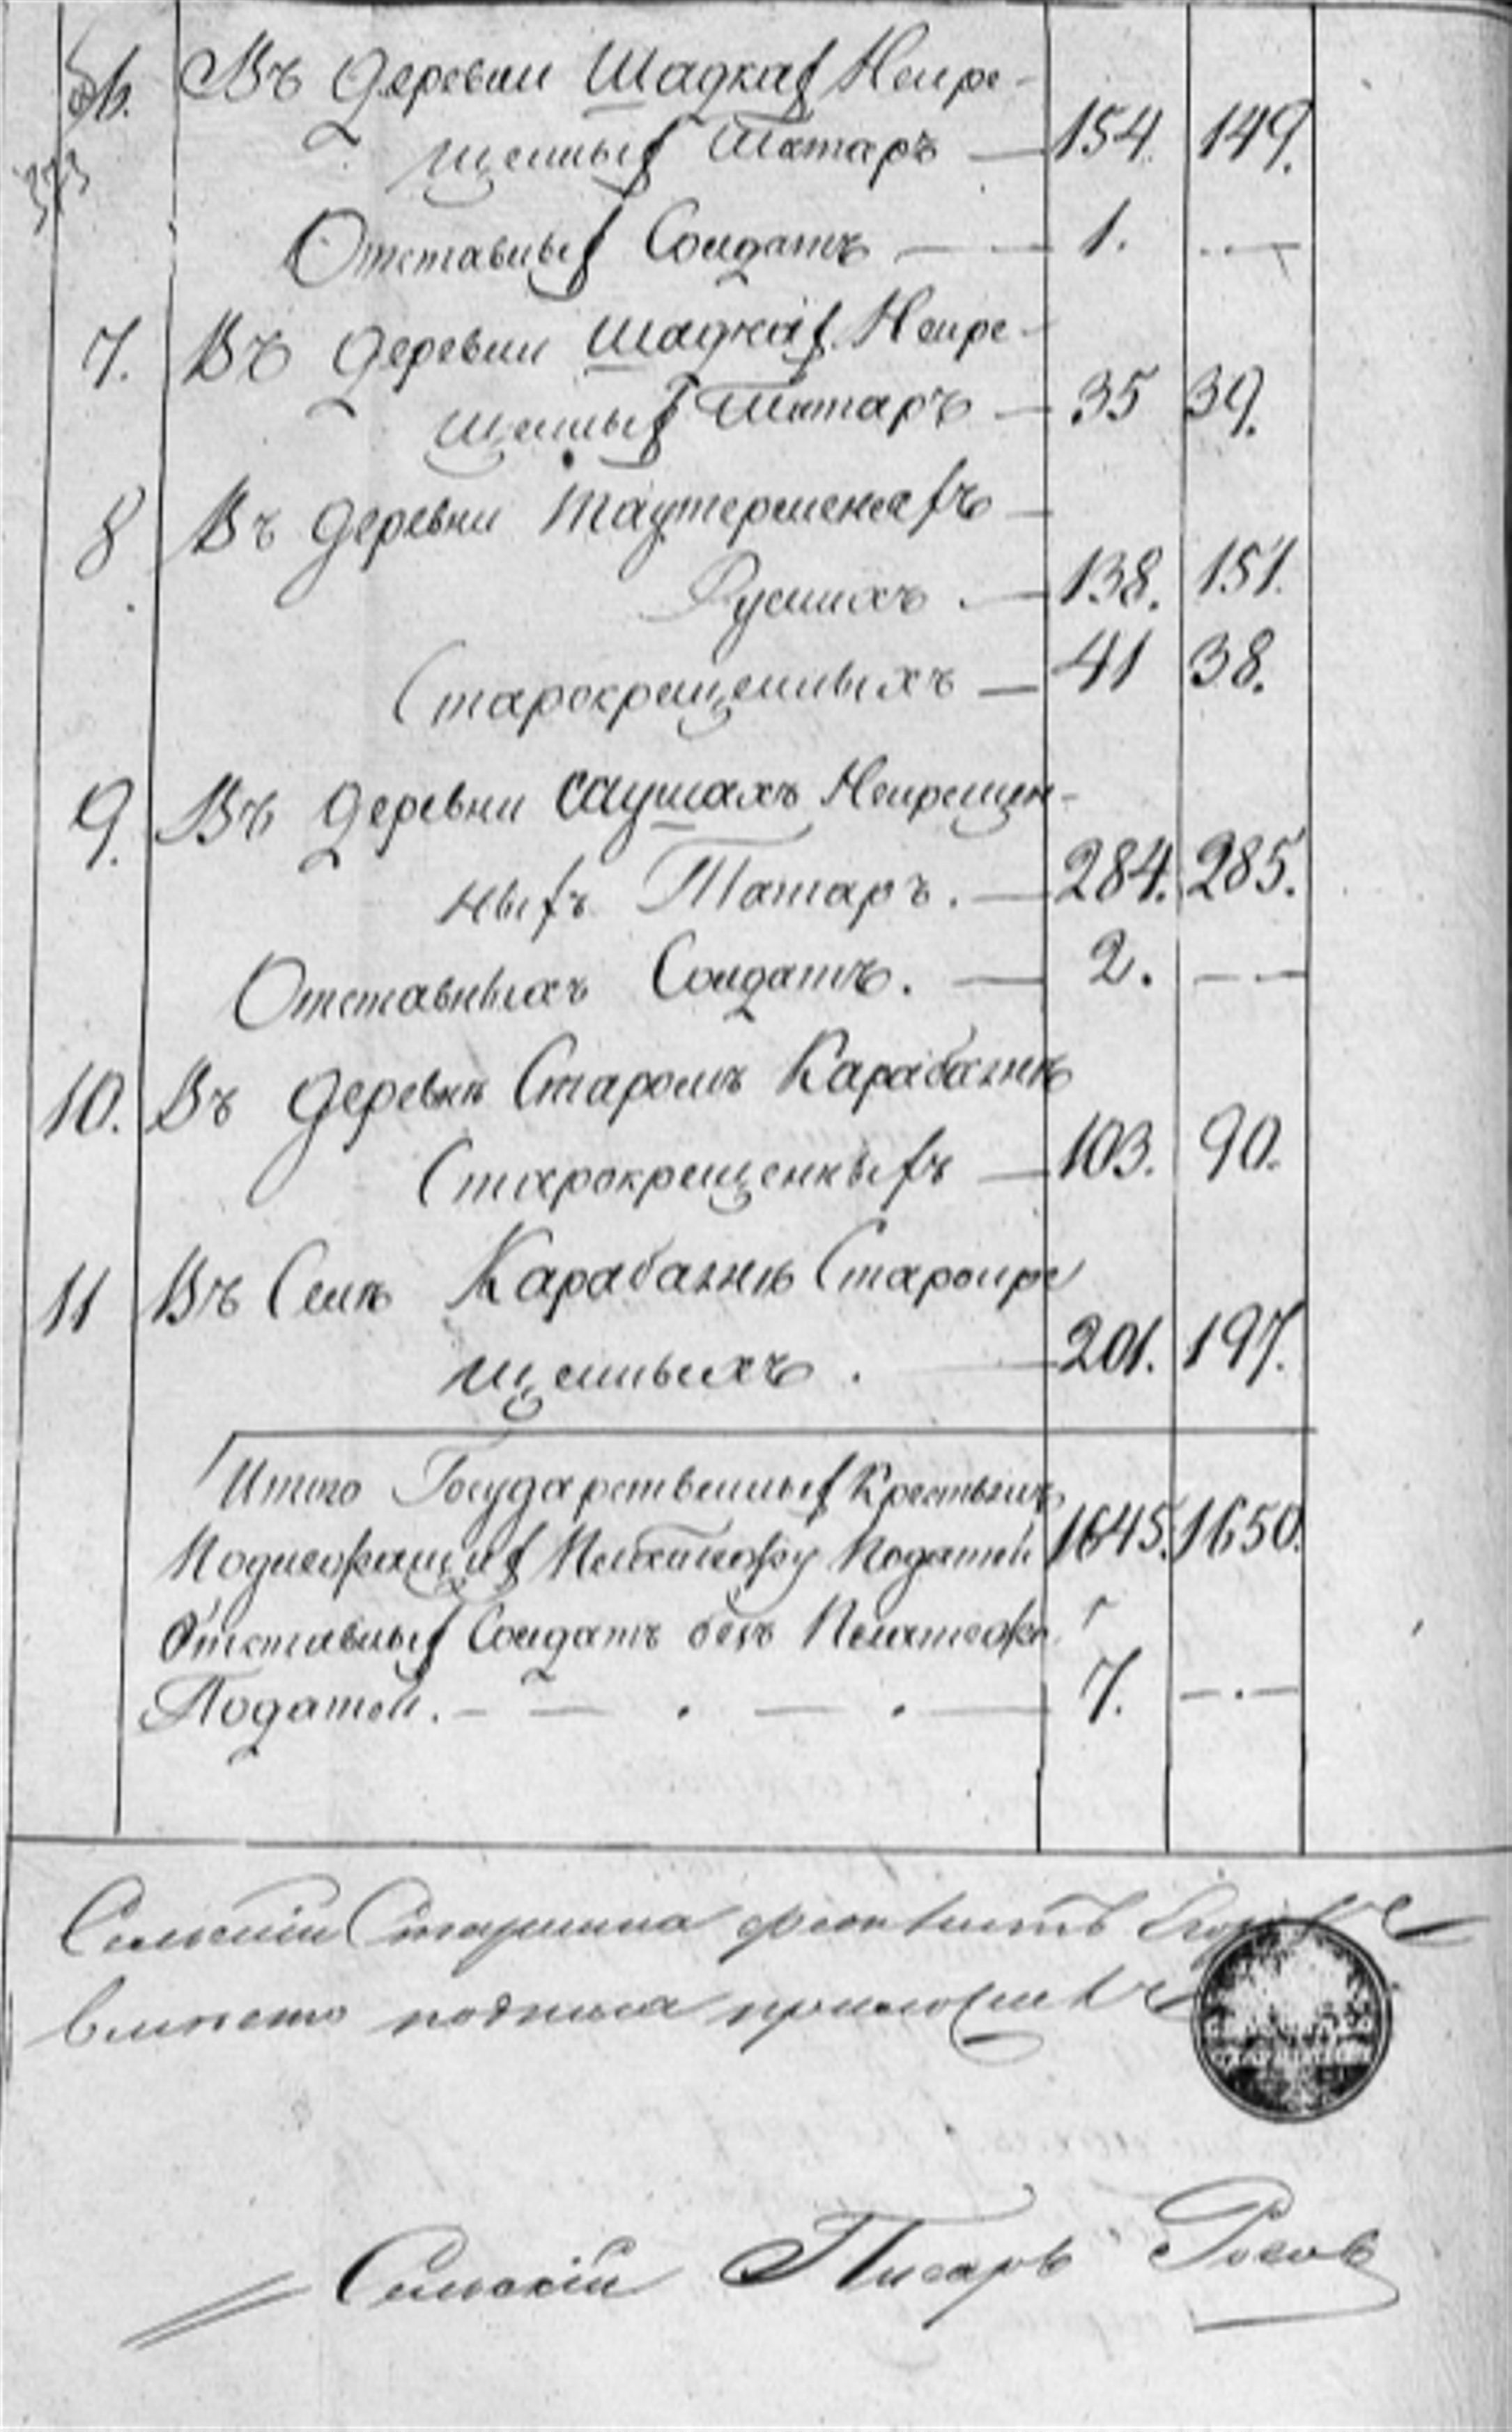 6. Въ деревни Шадкахъ Некре-
373
щеныхъ Татаръ — 154. 149.
Отставныхъ Солдатъ — 1. —
7. Въ деревни Шадкахъ Некре-
щеныхъ Татаръ — 35 39.
8 Въ деревни
Русскихъ. — 138. 151.
Старокрещенныхъ — 41 38.
9. Въ деревни Саушахъ Некрещен-
ныхъ Татаръ. — 284. 285.
Отставныхъ Солдатъ. — 2. — —
10. Въ деревнѣ Старомъ Карабаянѣ
Старокрещенныхъ — 103. 90.
11 Въ Селѣ Карабаянѣ Старокре
щенныхъ. — 201. 197.
Итого Государственныхъ Крестьянъ
Подлежащихъ Платежу Податей 1645. 1650.
Отставныхъ Солдатъ безъ Платежа
Податей. — — . — . — 7. — . —
Сельскій Старшина
вместо подписа приложилъ
Сельскій Писарь